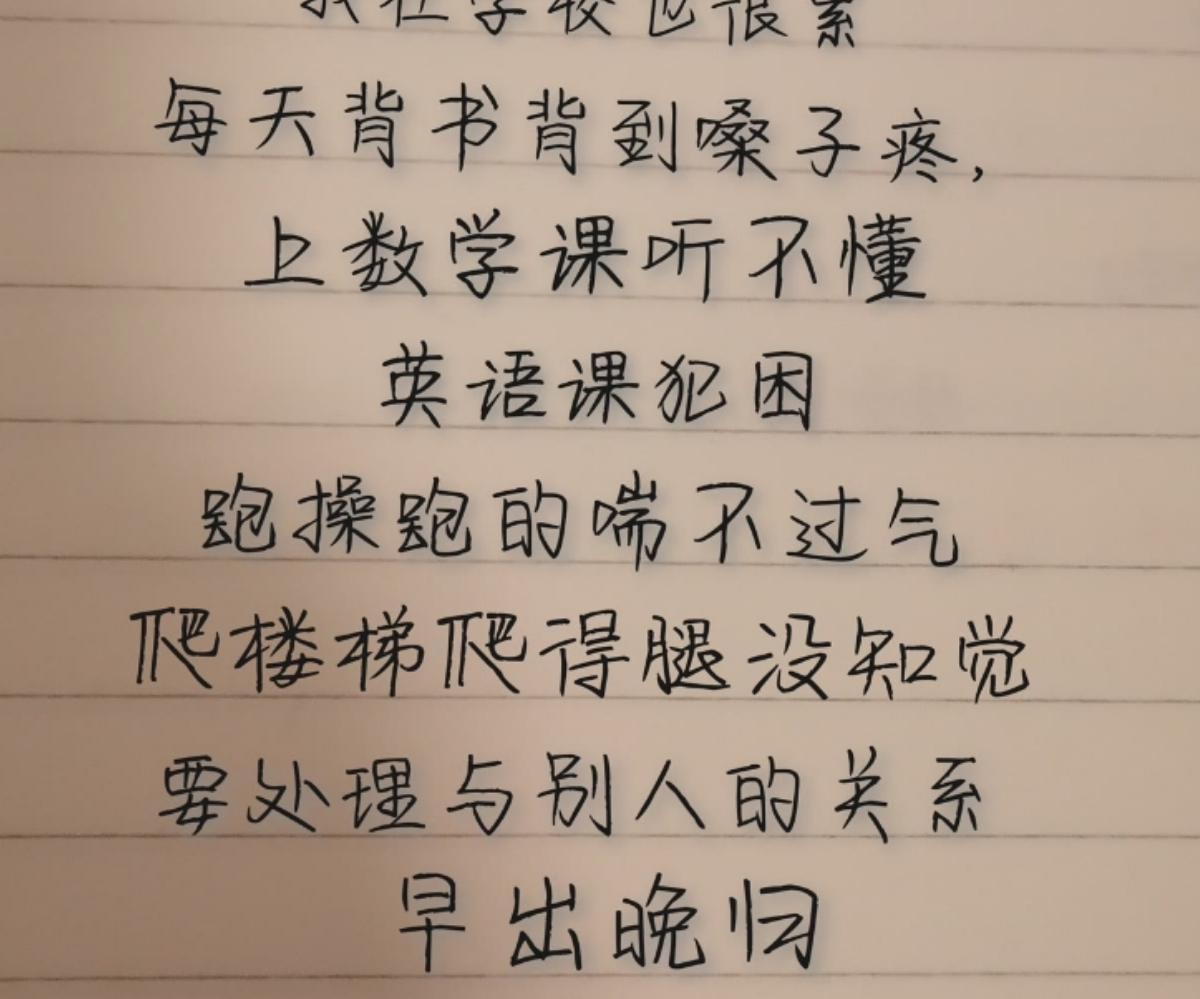 我在学校也很累
每天背书背到嗓子疼,
上数学课听不懂
英语课犯困
跑操跑的喘不过气
爬楼梯爬得腿没知觉
要处理与别人的关系
早出晚归